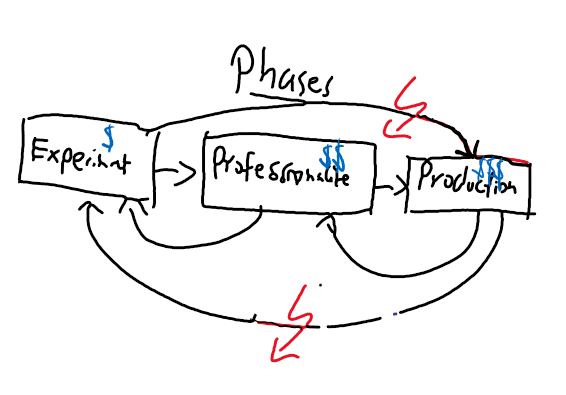 Phases
$
Experiment
$$
Professionalize
$$$
Production